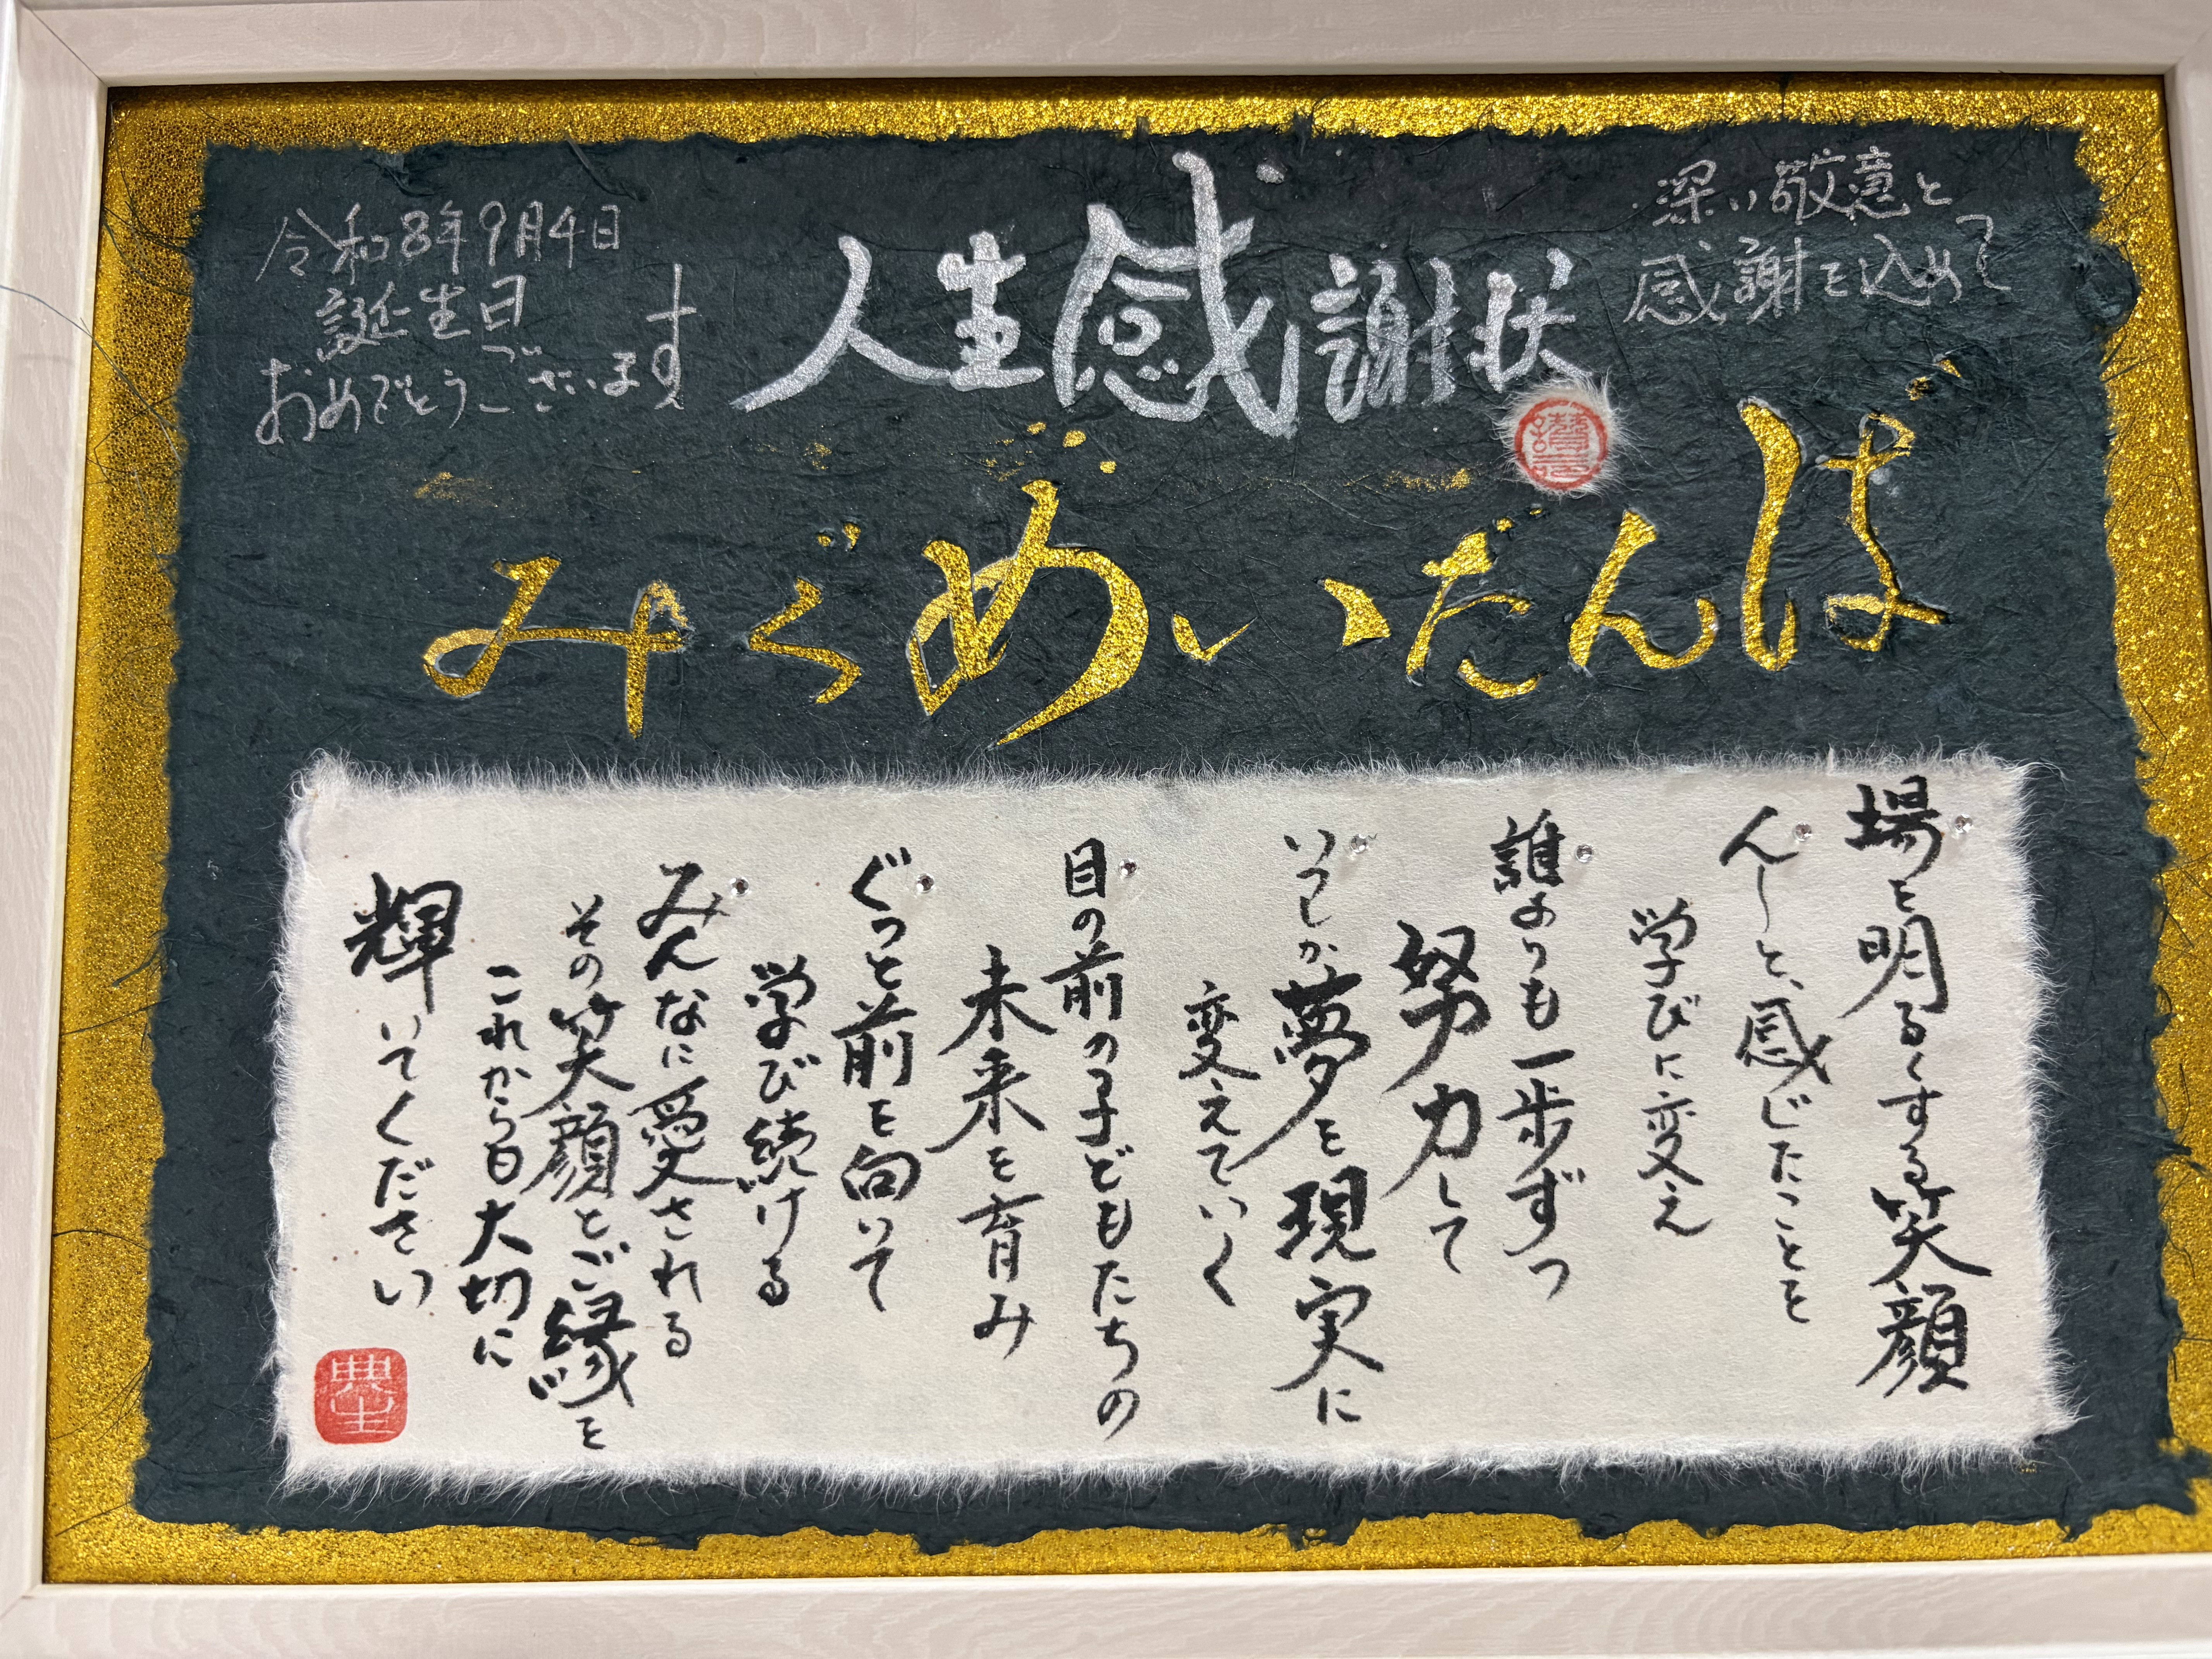 人生感謝状
深い敬意と
感謝を込めて
令和8年9月4日
誕生日
おめでとうございます
ばんだいめぐみ
場を明るくする笑顔
んーと、感じたことを
学びに変え
誰よりも一歩ずつ
努力して
いつしか夢を現実に
変えていく
目の前の子どもたちの
未来を育み
ぐっと前を向いて
学び続ける
みんなに愛される
その笑顔とご縁を
これからも大切に
輝いてください
典生